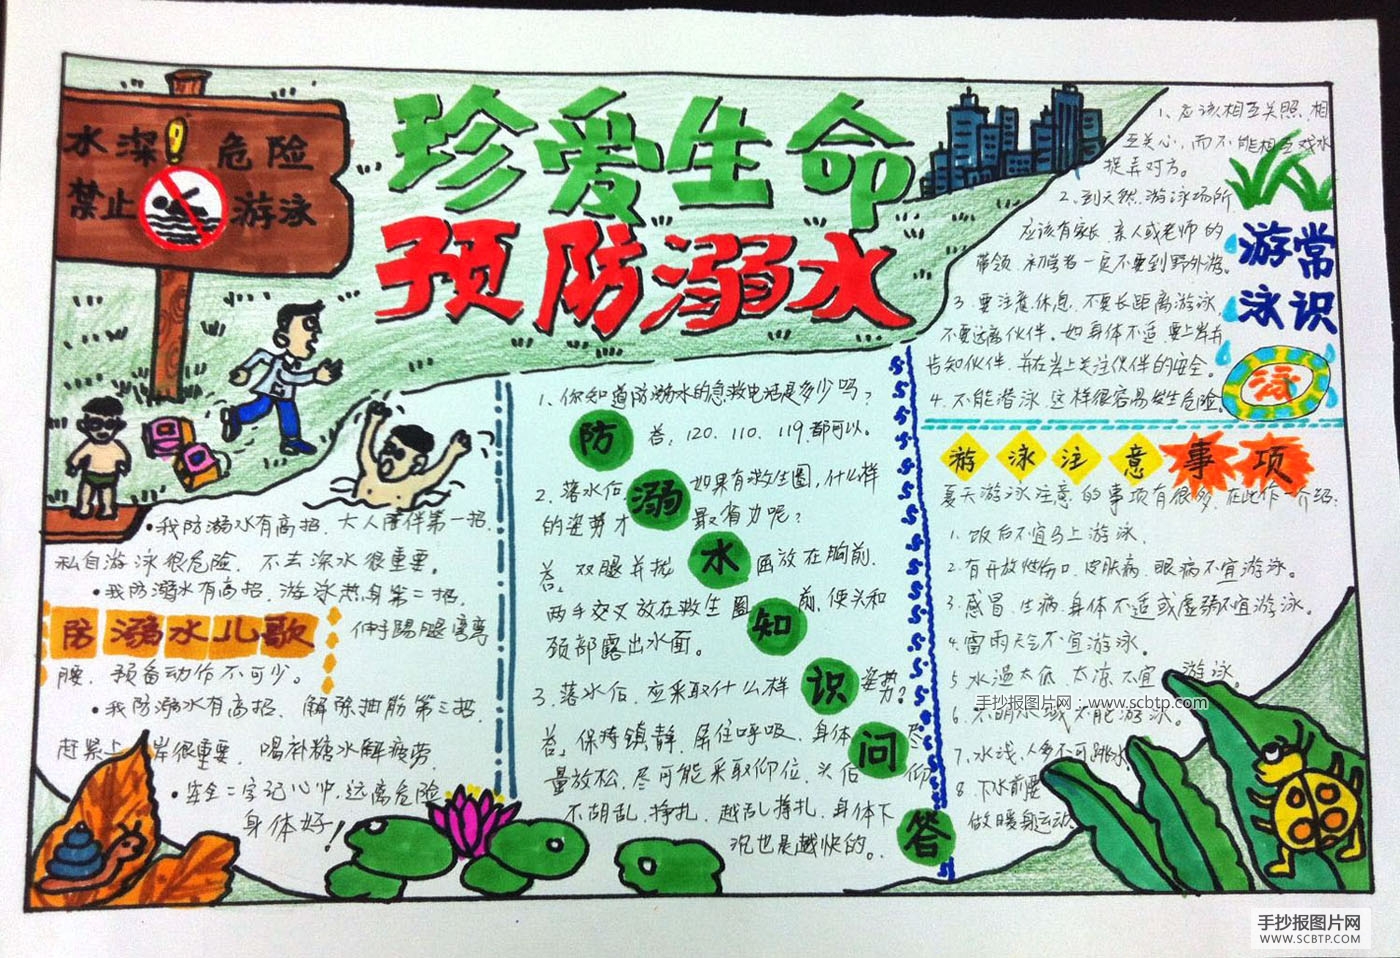 珍爱生命
预防溺水
水深！危险
禁止游泳
•我防溺水有高招，大人陪伴第一招，
私自游泳很危险，不去深水很重要。
•我防溺水有高招，游泳热身第二招，
防溺水儿歌
伸手踢腿弯弯
腰，预备动作不可少。
•我防溺水有高招，解除抽筋第三招，
赶紧上岸很重要，喝补糖水解疲劳，
•安全二字记心中，远离危险
身体好！
防溺水知识问答
1、你知道防溺水的急救电话是多少吗？
答，120、110、119都可以。
2、落水后 如果有救生圈，什么样
的姿势才 最省力呢？
答，双腿并拢 画放在胸前，
两手交叉放在救生圈 前，使头和
颈部露出水面。
3、落水后，应采取什么样 姿势？
答。保持镇静，屏住呼吸，身体 尽
量放松，尽可能采取仰位，头后 仰
不胡乱挣扎，越乱挣扎，身体下
沉也是越快的。
1、应该相互关照，相
互关心，而不能相互戏水
捉弄对方。
2、到天然游泳场所
应该有家长亲人或老师的
带领，初学者一定不要到野外游。
3 要注意休息，不要长距离游泳，
不要远离伙伴。如身体不适，要上岸并
告知伙伴，并在岸上关注伙伴的安全。
4、不能潜泳，这样很容易发生危险。
游泳常识
泳
游泳注意事项
夏天游泳注意的事项有很多，在此作一介绍：
1、饭后不宜马上游泳、
2、有开放性伤口、皮肤病、眼病不宜游泳。
3、感冒、生病、身体不适或虚弱不宜游泳。
4、雷雨天气不宜游泳。
5 水温太低、太凉不宜 游泳。
6、不明水域不能游泳。
7、水浅、人多不可跳水
8、下水前要
做暖身运动、
手抄报图片网：www.scbtp.com
手抄报图片网
WWW.SCBTP.COM